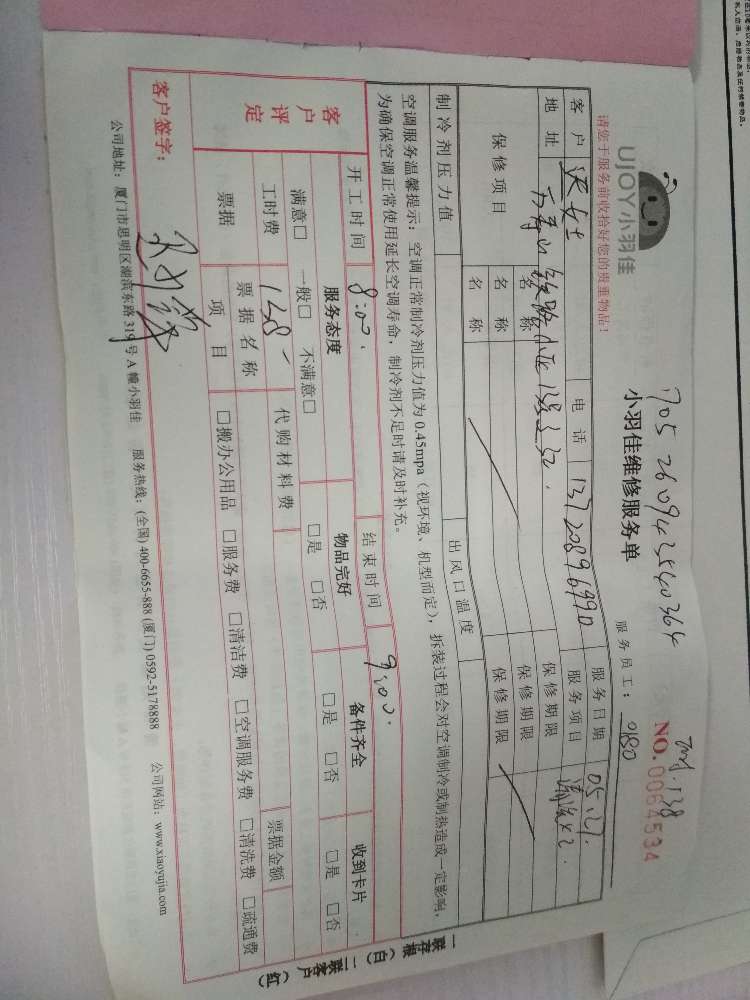 UJOY小羽佳
请您于服务前收拾好您的贵重物品!
小羽佳维修服务单
NO.0064534
服务员工: 0180
客户 电话 13720896990 服务日期 05.27.
地址 服务项目 清洗x2.
保修项目 名称 保修期限
名称 保修期限
名称 保修期限
制冷剂压力值 出风口温度
空调服务温馨提示: 空调正常制冷剂压力值为 0.45mpa (视环境、机型而定), 拆装过程会对空调制冷或制热造成一定影响,
为确保空调正常使用延长空调寿命, 制冷剂不足时请及时补充。
开工时间 8:00. 结束时间 9:00.
客户评定 服务态度 物品完好 备件齐全 收到卡片
满意□ 一般□ 不满意□ □是 □否 □是 □否 □是 □否
工时费 138 代购材料费 票据金额
票据 票据名称
项目 □搬办公用品 □服务费 □清洁费 □空调服务费 □清洗费 □疏通费
客户签字:
公司地址: 厦门市思明区湖滨东路 319 号 A 幢小羽佳 服务热线: (全国) 400-6655-888 (厦门) 0592-5178888 公司网站: www.xiaoyujia.com
一联存根 (白) 二联客户 (红)